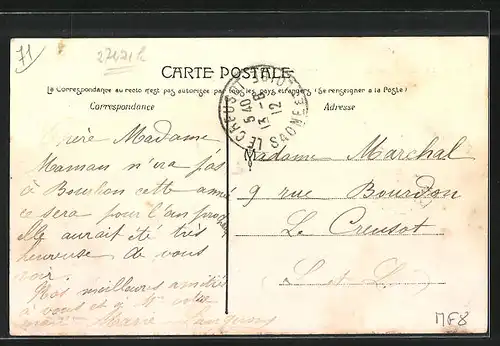 71
27471 R
CARTE POSTALE
La Correspondance au recto n'est pas autorisée par tous les pays étrangers (Se renseigner à la Poste)
Correspondance
Adresse
LE CREUSOT
SAONE ET LOIRE
5 40
13 - 8
12
Chère Madame
Maman n'ira pas
à Bourbon cette année
ce sera pour l'an prochain
elle aurait été très
heureuse de vous
voir.
Nos meilleures amitiés
à vous et à Mr votre
mari Marie
Madame Marchal
9 rue Bourdon
Le Creusot
(S et L)
MF8